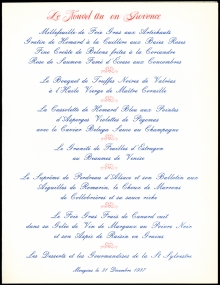 Le Nouvel An en Provence
Millefeuille de Foie Gras aux Artichauts
Gratin de Homard à la Cuillère aux Baies Roses
Fine Crêpe de Belons frites à la Coriandre
Rose de Saumon Fumé d'Ecosse aux Concombres
Le Bouquet de Truffes Noires de Valréas
à l'Huile Vierge de Maître Cornille
La Cassolette de Homard Bleu aux Pointes
d'Asperges Violettes de Pégomas
avec le Caviar Beluga Sauce au Champagne
Le Granité de Feuilles d'Estragon
au Beaumes de Venise
Le Suprême de Perdreau d'Alsace et son Ballottin aux
Aiguilles de Romarin, le Choux de Marrons
de Collobrières et sa sauce riche
Le Foie Gras Frais de Canard cuit
dans sa Gelée de Vin de Margaux au Poivre Noir
et son Aspic de Raisin en Grains
Les Desserts et les Gourmandises de la St Sylvestre
Mougins le 31 Décembre 1987